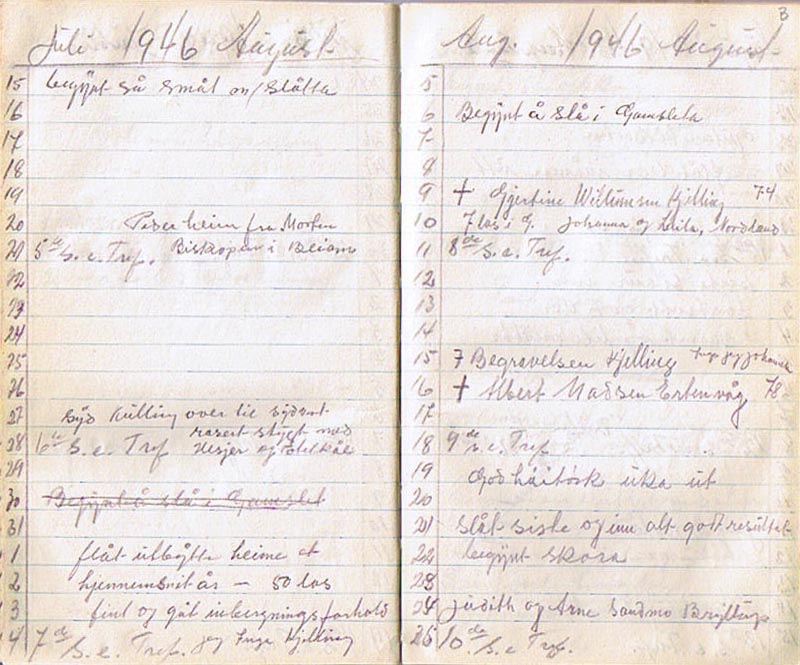 Juli 1946 August
15 begynt så smått on/slåtta
16
17
18
19
20 Peder heim fra Morten
21 5de S. e. Tref. Biskopen i Beiarn
22
23
24
25
26
27 Syd Kulling over til sydvest
rasert stygt med
28 6te S. e. Tref Hesjer og
29
30 Begynt å slå i Gamslet
31
1 slåt utbytte heime et
2 hjennemsnit år – 50 las
3 fint og gåt inbergningsforhold
4 7de S. e. Tref. Inge Kjelling
3
Aug. 1946 August
5
6 Begynt å slå i Gamsleta
7
8
9 † Gjertine Willumsen Kjelling 74
10 7 las i G. Johanna og Laila, Nordland
11 8de S. e. Tref.
12
13
14
15 7 Begravelsen Kjelling
16 † Albert Madsen Ertenvåg 78
17
18 9de S. e. Tref
19 God håitørk uka ut
20
21 slåt siste og inn alt godt resultat
22 begynt skora
23
24 Judith og Arne Sandmo Bryllup
25 10de S. e. Tref.